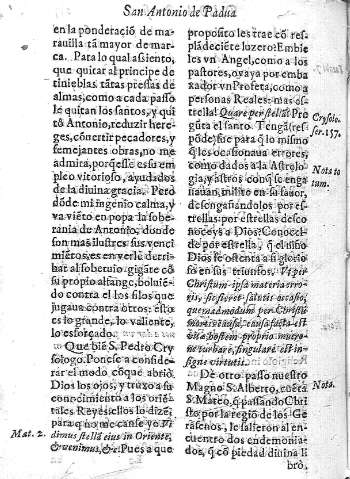 San Antonio de Padua
en la ponderació de ma-
rauilla tã mayor de mar-
ca. Para lo qual assiento,
que quitar al principe de
tinieblas tãtas pressas de
almas, como a cada passo
le quitan los santos, y quí
tó Antonio, reduzir here-
ges, cõnertir pecadores, y
semejantes obras, no me
admira, porq̃ esse es su em
pleo vitorioso, ayudados
de la diuina gracia. Pero
dõde mi ingenio calma, y
va viẽto en popa la sobe-
rania de Antonio, donde
son mas ilustres sus venci
miẽtos, es en verle derri-
bar al soberuio gigãte cõ
su propio alfange, boluiẽ-
do contra el los filos que
jugaua contra otros: esto
es lo grande, lo valiente,
lo esforçado.
Que biẽ S. Pedro Cry
sologo. Ponese a conside-
rar el modo cõque abrió
Dios los ojos, y truxo a su
conocimiento a los oriẽ-
tales Reyes: ellos lo dizẽ;
para q̃ no me canse yo Vi
dimus stellã eius in Oriente,
& venimus, &c. Pues a que
Mat. 2.
proposito les trae cõ res-
plãdeciẽte luzero? Embie
les vn Angel, como a los
pastores, o vaya por emba
xador vn Profeta, como a
personas Reales: mas es-
trella? Quare per stellã? Pre
gũta el santo. Tengã (res-
põde) fue para q̃ lo mismo
q̃ les ocasionaua errores,
como dados a la Astrolo-
gia, y astros con q̃ se enga
ñauan, milite en su fauor,
desengañandolos por es-
trellas: por estrellas desco
noceys a Dios? Conocel-
de por estrella, q̃ el niño
Dios se ostenta assi glorio
so en sus triunfos. Vt per
Christum ipsa materia erro-
ris, sieret salutis occasio,
quemadmodum per Christi
De otro passo nuestro
Magno S. Alberto, cuẽta
S. Mateo, q̃ passando Chri
sto, por la region de los Ge
rasenos, le salieron al en-
cuentro dos endemonia-
dos, q̃ cõ piedad diuina li
brò,
Crysolo.
ser. 157.
Nota to
tum.
Nota.